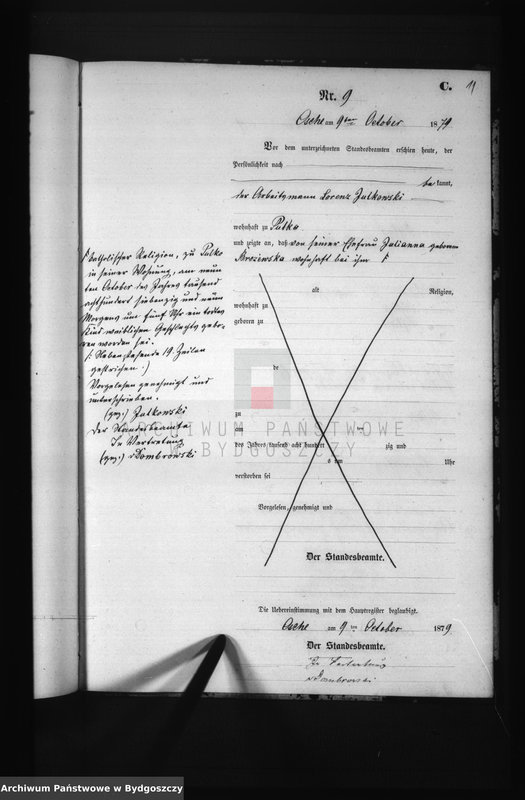 C. 11
Nr. 9
Osche am 9ten October 1879
Vor dem unterzeichneten Standesbeamten erschien heute, der
Persönlichkeit nach
bekannt,
der Arbeitsmann Lorenz Zulkowski
wohnhaft zu Pulko
und zeigte an, daß von seiner Ehefrau Julianna geborene
wohnhaft bei ihm
alt Religion,
wohnhaft zu
geboren zu
de
zu
am ten
des Jahres tausend acht hundert zig und
s um Uhr
verstorben sei
Vorgelesen, genehmigt und
Der Standesbeamte.
Die Uebereinstimmung mit dem Hauptregister beglaubigt.
Osche am 9 ten October 1879
Der Standesbeamte.
In Vertretung
v Dombrowski
katholischer Religion, zu Pulko
in seiner Wohnung, am neun
ten October des Jahres tausend
achthundert siebenzig und neun
Morgens um fünf Uhr ein todtes
Kind weiblichen Geschlechts gebo-
ren worden sei.
/: Nebenstehende 19 Zeilen
gestrichen :/
Vorgelesen genehmigt und
unterschrieben.
(gez.) Zulkowski
Der Standesbeamte
In Vertretung
(gez.) v Dombrowski
ARCHIWUM PAŃSTWOWE
W BYDGOSZCZY
Archiwum Państwowe w Bydgoszczy